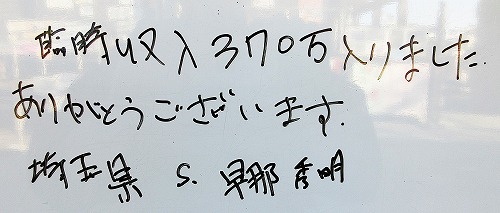 臨時収入370万入りました
ありがとうございます.
埼玉県 S. 早那 秀明